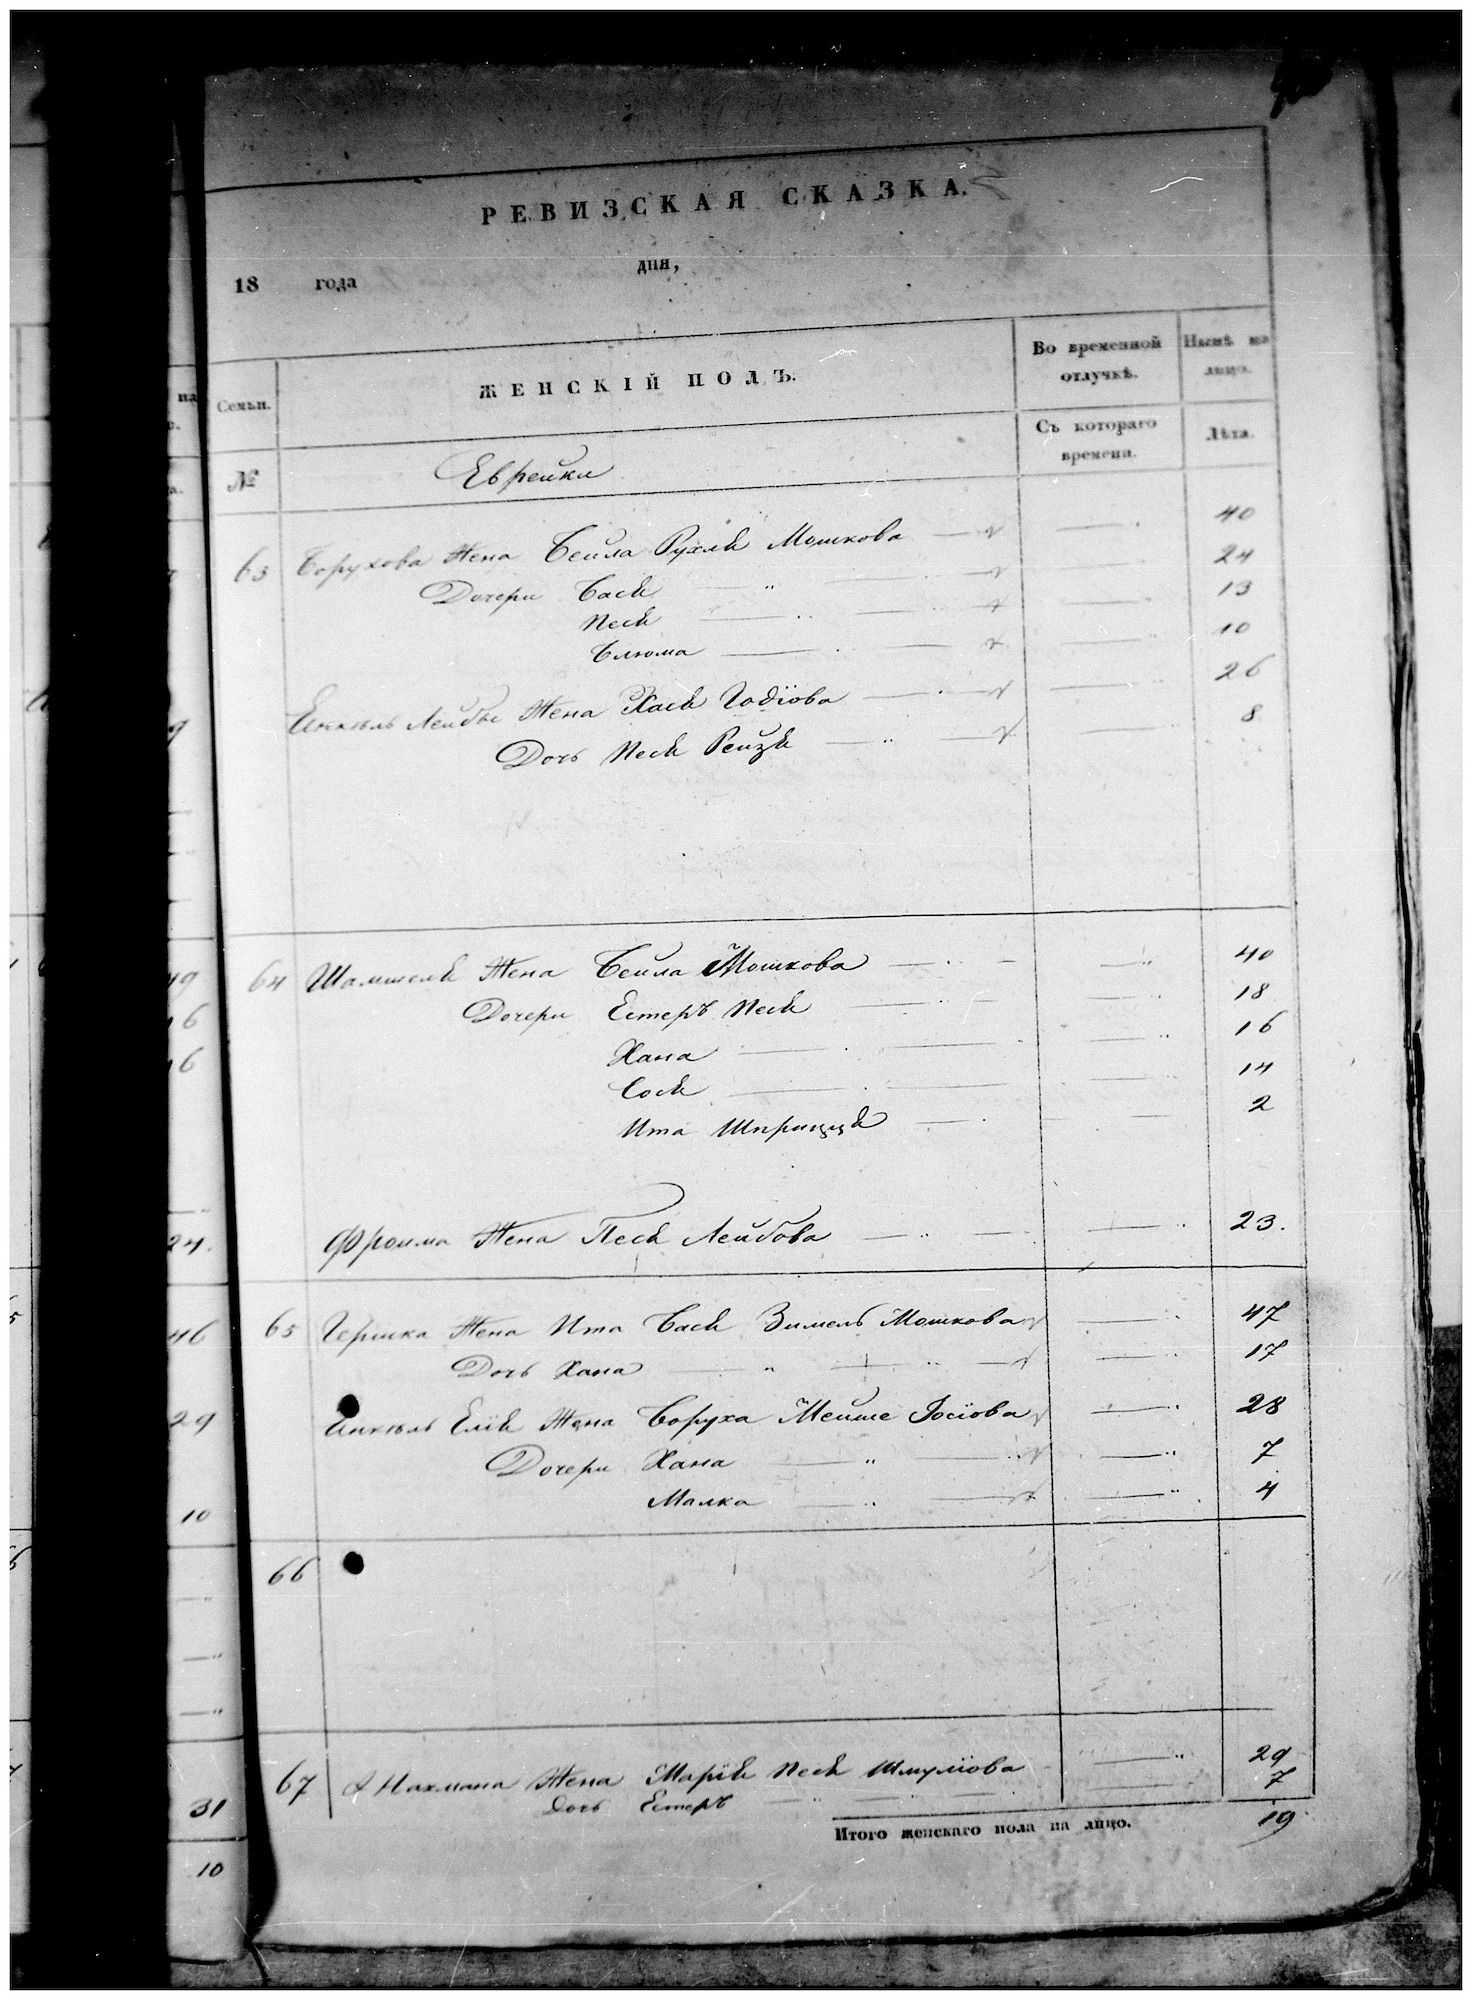 РЕВИЗСКАЯ СКАЗКА.
18 года дня,
Семьи. ЖЕНСКІЙ ПОЛЪ. Во временной отлучкѣ. Нынѣ на лицо.
№ Еврейки Съ котораго времени. Лѣта.
63 Борухова Жена Бейла Рухля Мошкова 40
Дочери Бася 24
Песя 13
Блюма 10
Янкель Лейбы Жена Хася Годіова 26
Дочь Песя Рейзя 8
64 Шамшеля Жена Бейла Мошкова 40
Дочери Естеръ Песя 18
Хана 16
Сося 14
Ита Шпринця 2
Фроима Жена Песя Лейбова 23.
65 Гершка Жена Ита Бася Зимель Мошкова 47
Дочь Хана 17
Янкель Елія Жена Боруха Мейше Іосіова 28
Дочери Хана 7
Малка 4
66
67 Нахмана Жена Марія Песя Шмуліова 29
Дочь Естеръ 7
Итого женскаго пола на лицо. 19
на
49
16
16
24.
46
29
10
31
10